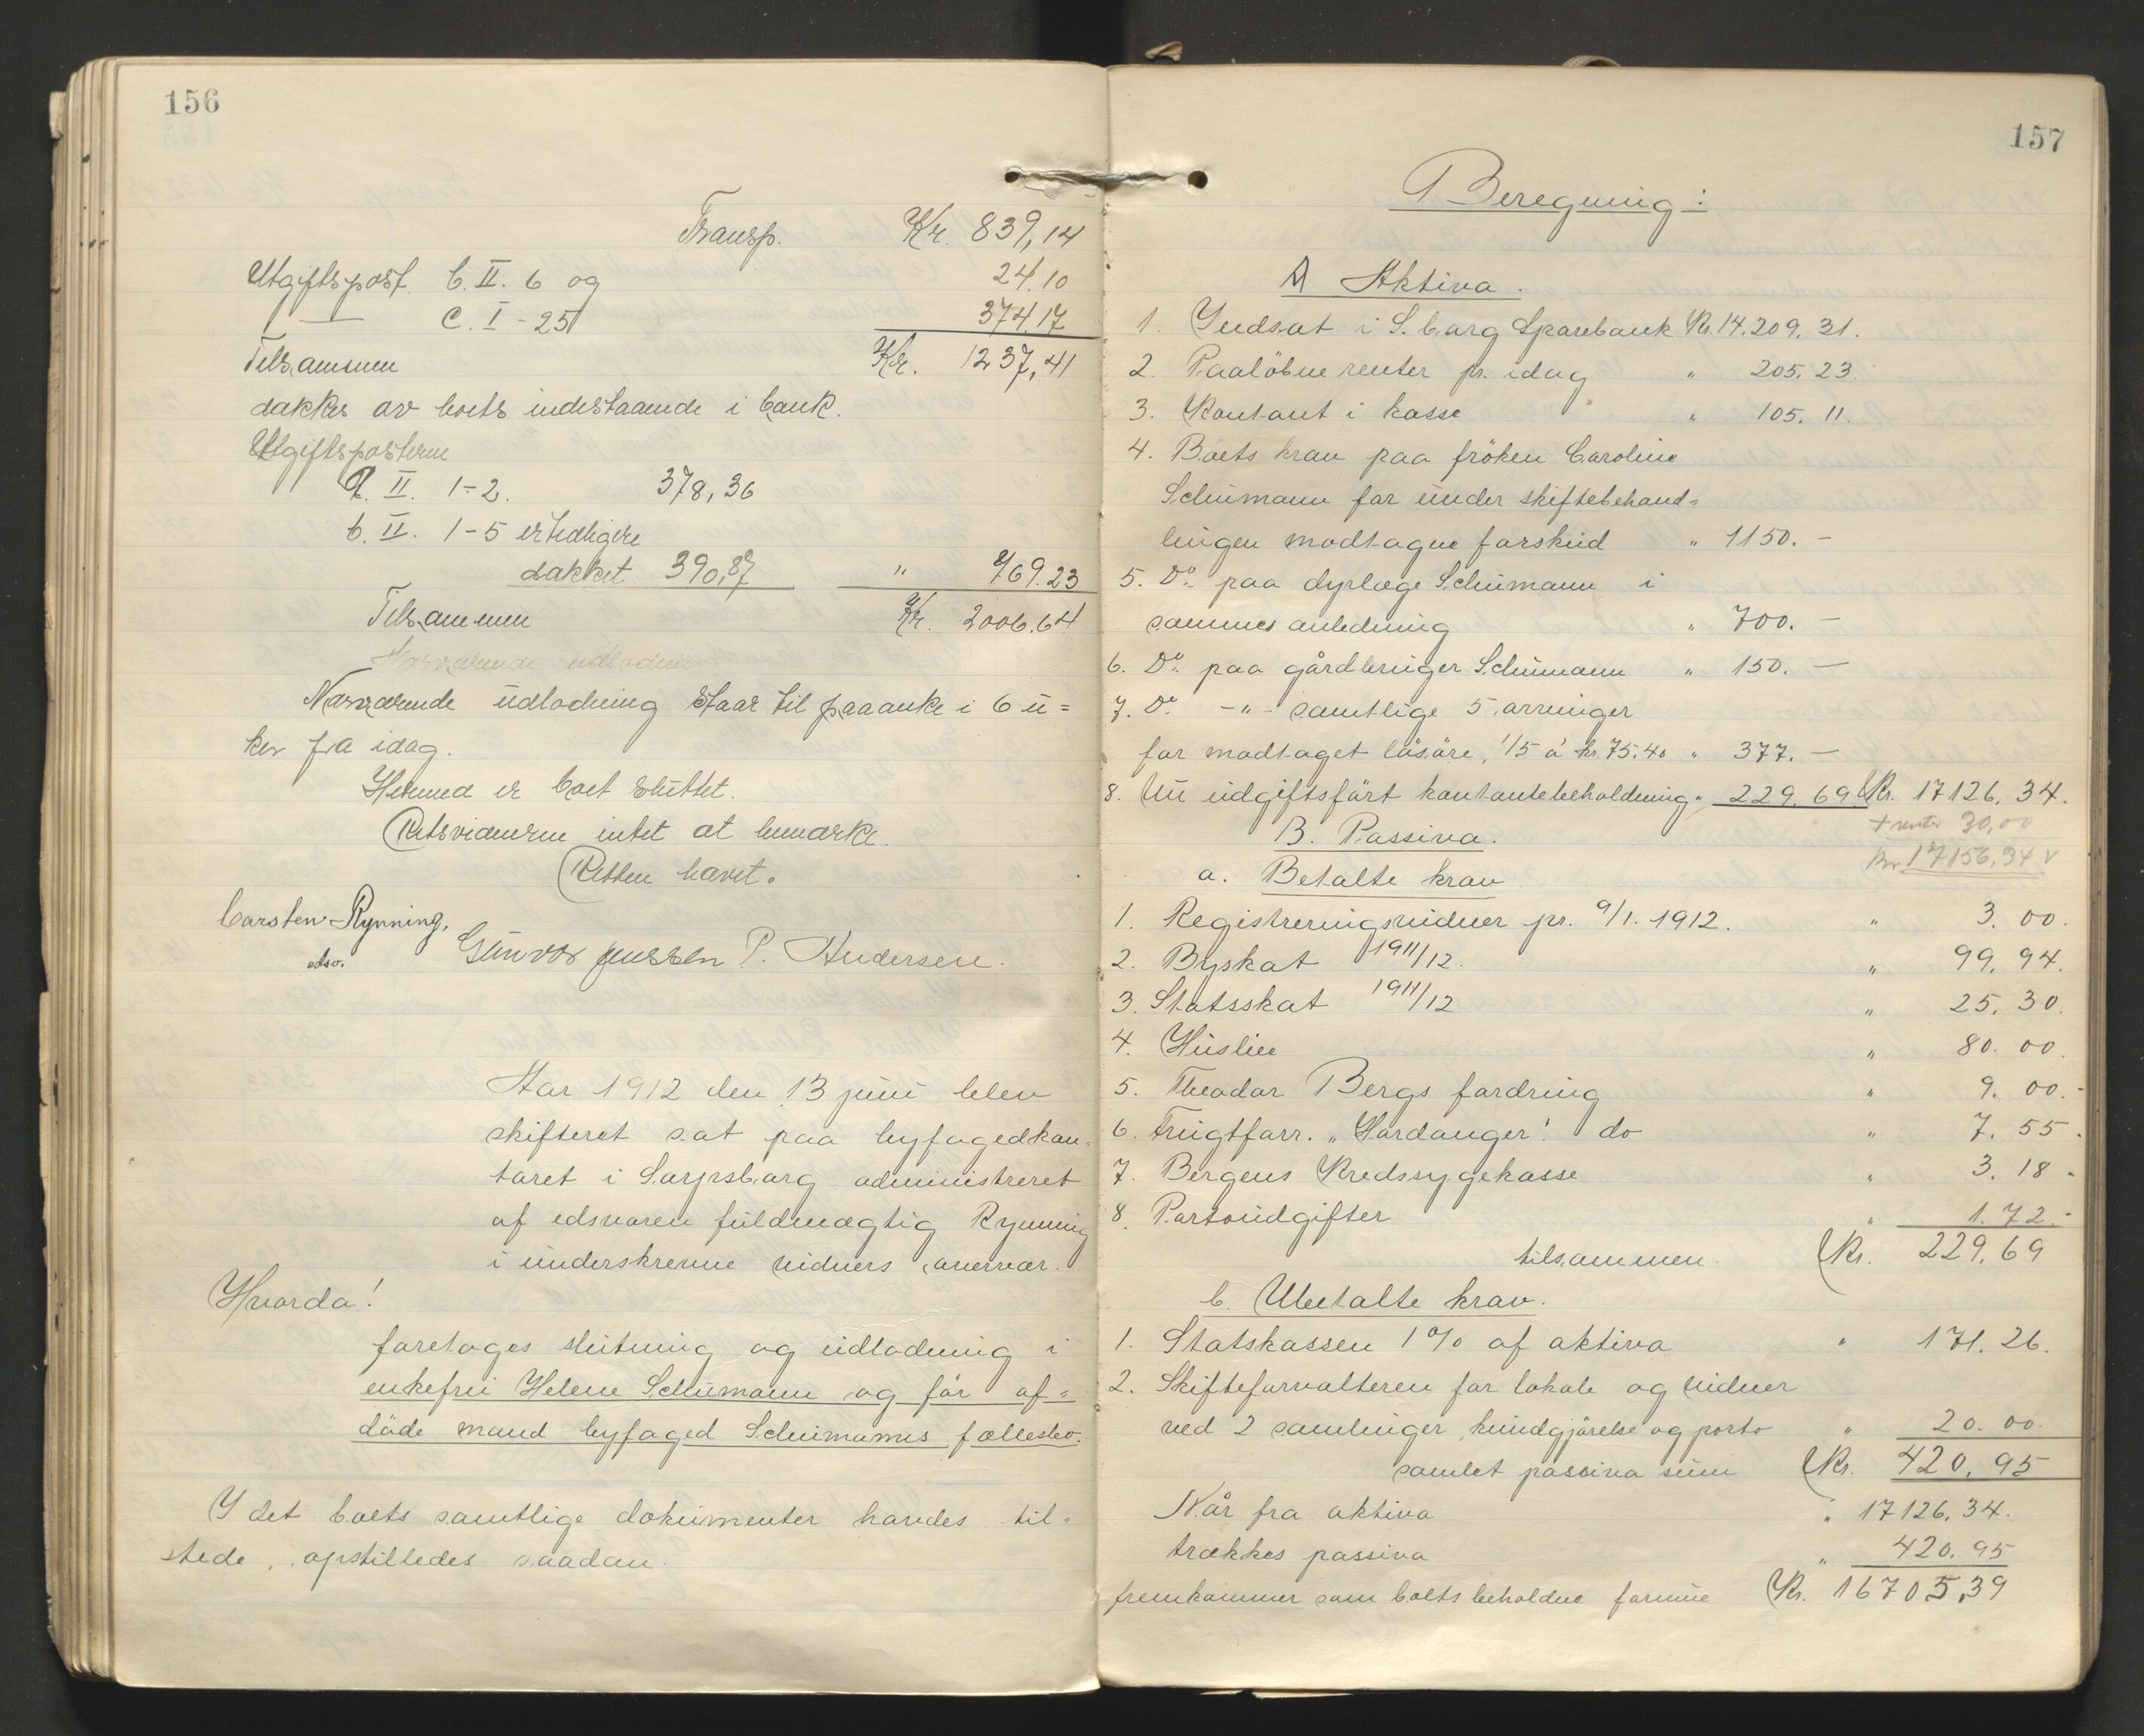 156
Transp. Kr. 839,14
Utgiftspost b. II. 6 og 24.10
— C. I - 25 374.17
Tilsammen Kr. 1237,41
dækkes av boets indestaaende i bank.
Utgiftsposterne
A. II. 1-2. 378,36
b. II. 1-5 er tidligere
dækket 390,87 " 769.23
Tilsammen Kr. 2006.64
Nærværende udlodn
Nærværende udlodning staar til paaanke i 6 u=
ker fra idag.
Hermed er boet sluttet.
Retsvidnerne intet at bemærke.
Retten hævet.
Carsten Rynning,
edsv.
Gunvor Jenssen P. Andersen.
Aar 1912 den 13 juni blev
skifteret sat paa byfogedkon-
toret i Sarpsborg administreret
af edsvoren fuldmægtig Rynning
i underskrevne vidners overvær.
Hvorda!
foretoges slutning og udlodning i
enkefru Helene Schumann og før af=
døde mand byfoged Schumanns fællesbo.
I det boets samtlige dokumenter havdes til-
stede, opstilledes saadan
157
Beregning:
A Aktiva.
1. Indsat i S.borg Sparebank Kr. 14.209. 31.
2. Paaløbne renter pr. idag " 205. 23.
3. Kontant i kasse " 105. 11.
4. Boets krav paa frøken Caroline
Schumann for under skiftebehand=
lingen modtagne forskud " 1150. -
5. Do paa dyrlæge Schumann i
sammes anledning " 700. —
6. Do paa gårdbruger Schumann " 150. —
7. Do -"- samtlige 5 arvinger
for modtaget løsøre, 1/5 á kr. 75.40 " 377. —
8. Nu udgiftsført kontantebeholdning " 229. 69 Kr. 17126. 34.
+ renter 30,00
Kr. 17156,34 v
B. Passiva.
a. Betalte krav
1. Registreringsvidner pr. 9/1. 1912. " 3. 00.
2. Byskat 1911/12. " 99. 94.
3. Statsskat 1911/12 " 25. 30.
4. Husleie " 80. 00.
5. Theodor Bergs fordring " 9. 00.-
6. Frugtforr. „Hardanger". do " 7. 55.
7. Bergens Kredssygekasse " 3. 18.
8. Portoudgifter " 1. 72.-
tilsammen Kr. 229. 69
b. Ubetalte krav.
1. Statskassen 1% af aktiva " 171. 26.
2. Skifteforvalteren for lokale og vidner
ved 2 samlinger, kundgjørelse og porto " 20. 00.
samlet passiva sum Kr. 420, 95
Når fra aktiva " 17126. 34.
trækkes passiva " 420. 95
fremkommer som boets beholdne formue Kr. 16705,39